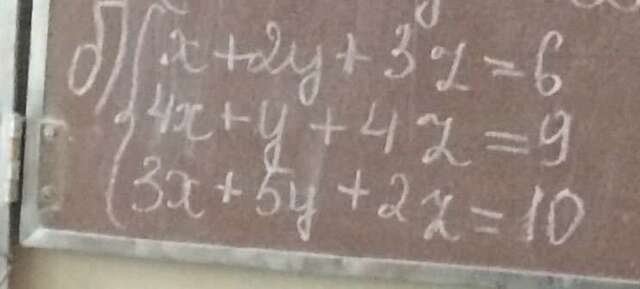 б) x + 2y + 3z = 6
4x + y + 4z = 9
3x + 5y + 2z = 10